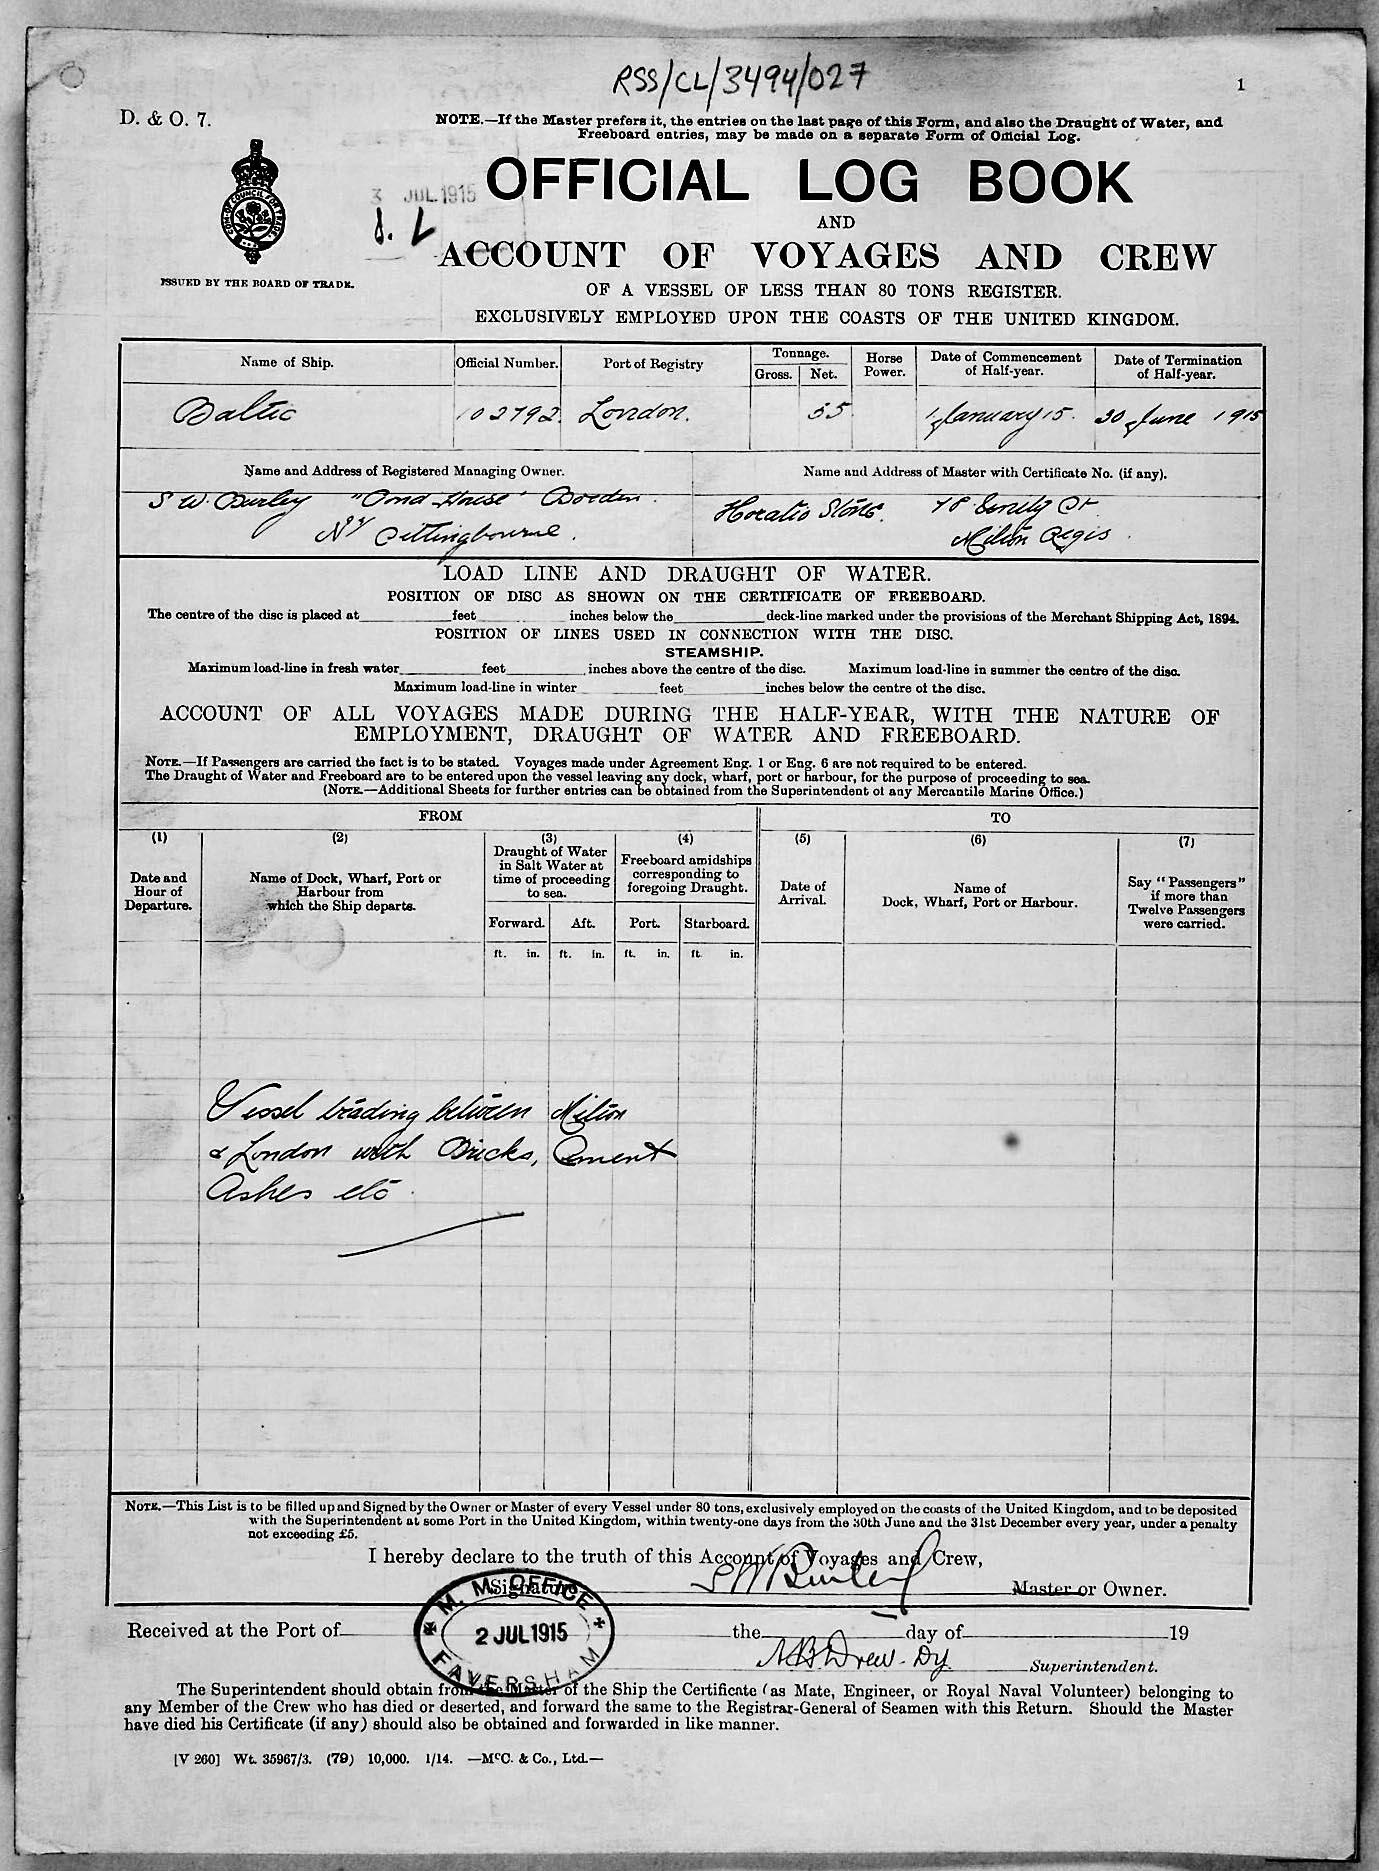 RSS/CL/3494/027
1
D. & O. 7.
NOTE.—If the Master prefers it, the entries on the last page of this Form, and also the Draught of Water, and
Freeboard entries, may be made on a separate Form of Official Log.
3 JUL 1915
OFFICIAL LOG BOOK
AND
ACCOUNT OF VOYAGES AND CREW
ISSUED BY THE BOARD OF TRADE.
OF A VESSEL OF LESS THAN 80 TONS REGISTER.
EXCLUSIVELY EMPLOYED UPON THE COASTS OF THE UNITED KINGDOM.
Name of Ship. Official Number. Port of Registry Tonnage. Gross. Net. Horse Power. Date of Commencement of Half-year. Date of Termination of Half-year.
Baltic 102792 London. 55 1 January 15. 30 June 1915
Name and Address of Registered Managing Owner. Name and Address of Master with Certificate No. (if any).
S W. Burley "Pond House" Borden. Horatio 78 St
Nr Sittingbourne. Milton Regis.
LOAD LINE AND DRAUGHT OF WATER.
POSITION OF DISC AS SHOWN ON THE CERTIFICATE OF FREEBOARD.
The centre of the disc is placed at feet inches below the deck-line marked under the provisions of the Merchant Shipping Act, 1894.
POSITION OF LINES USED IN CONNECTION WITH THE DISC.
STEAMSHIP.
Maximum load-line in fresh water feet inches above the centre of the disc. Maximum load-line in summer the centre of the disc.
Maximum load-line in winter feet inches below the centre of the disc.
ACCOUNT OF ALL VOYAGES MADE DURING THE HALF-YEAR, WITH THE NATURE OF
EMPLOYMENT, DRAUGHT OF WATER AND FREEBOARD.
NOTE.—If Passengers are carried the fact is to be stated. Voyages made under Agreement Eng. 1 or Eng. 6 are not required to be entered.
The Draught of Water and Freeboard are to be entered upon the vessel leaving any dock, wharf, port or harbour, for the purpose of proceeding to sea.
(NOTE.—Additional Sheets for further entries can be obtained from the Superintendent of any Mercantile Marine Office.)
FROM TO
(1) (2) (3) (4) (5) (6) (7)
Date and Hour of Departure.
Name of Dock, Wharf, Port or Harbour from which the Ship departs.
Draught of Water in Salt Water at time of proceeding to sea.
Freeboard amidships corresponding to foregoing Draught.
Date of Arrival.
Name of Dock, Wharf, Port or Harbour.
Say "Passengers" if more than Twelve Passengers were carried.
Forward. Aft. Port. Starboard.
ft. in. ft. in. ft. in. ft. in.
Vessel trading between Milton
& London with Bricks, Cement
Ashes etc.
NOTE.—This List is to be filled up and Signed by the Owner or Master of every Vessel under 80 tons, exclusively employed on the coasts of the United Kingdom, and to be deposited
with the Superintendent at some Port in the United Kingdom, within twenty-one days from the 30th June and the 31st December every year, under a penalty
not exceeding £5.
I hereby declare to the truth of this Account of Voyages and Crew,
Signature S W Burley Master or Owner.
M. M. OFFICE
2 JUL 1915
FAVERSHAM
Received at the Port of the day of 19
A B Drew. Dy. Superintendent.
The Superintendent should obtain from the Master of the Ship the Certificate (as Mate, Engineer, or Royal Naval Volunteer) belonging to
any Member of the Crew who has died or deserted, and forward the same to the Registrar-General of Seamen with this Return. Should the Master
have died his Certificate (if any) should also be obtained and forwarded in like manner.
[V 260] Wt. 35967/3. (79) 10,000. 1/14. —McC. & Co., Ltd.—